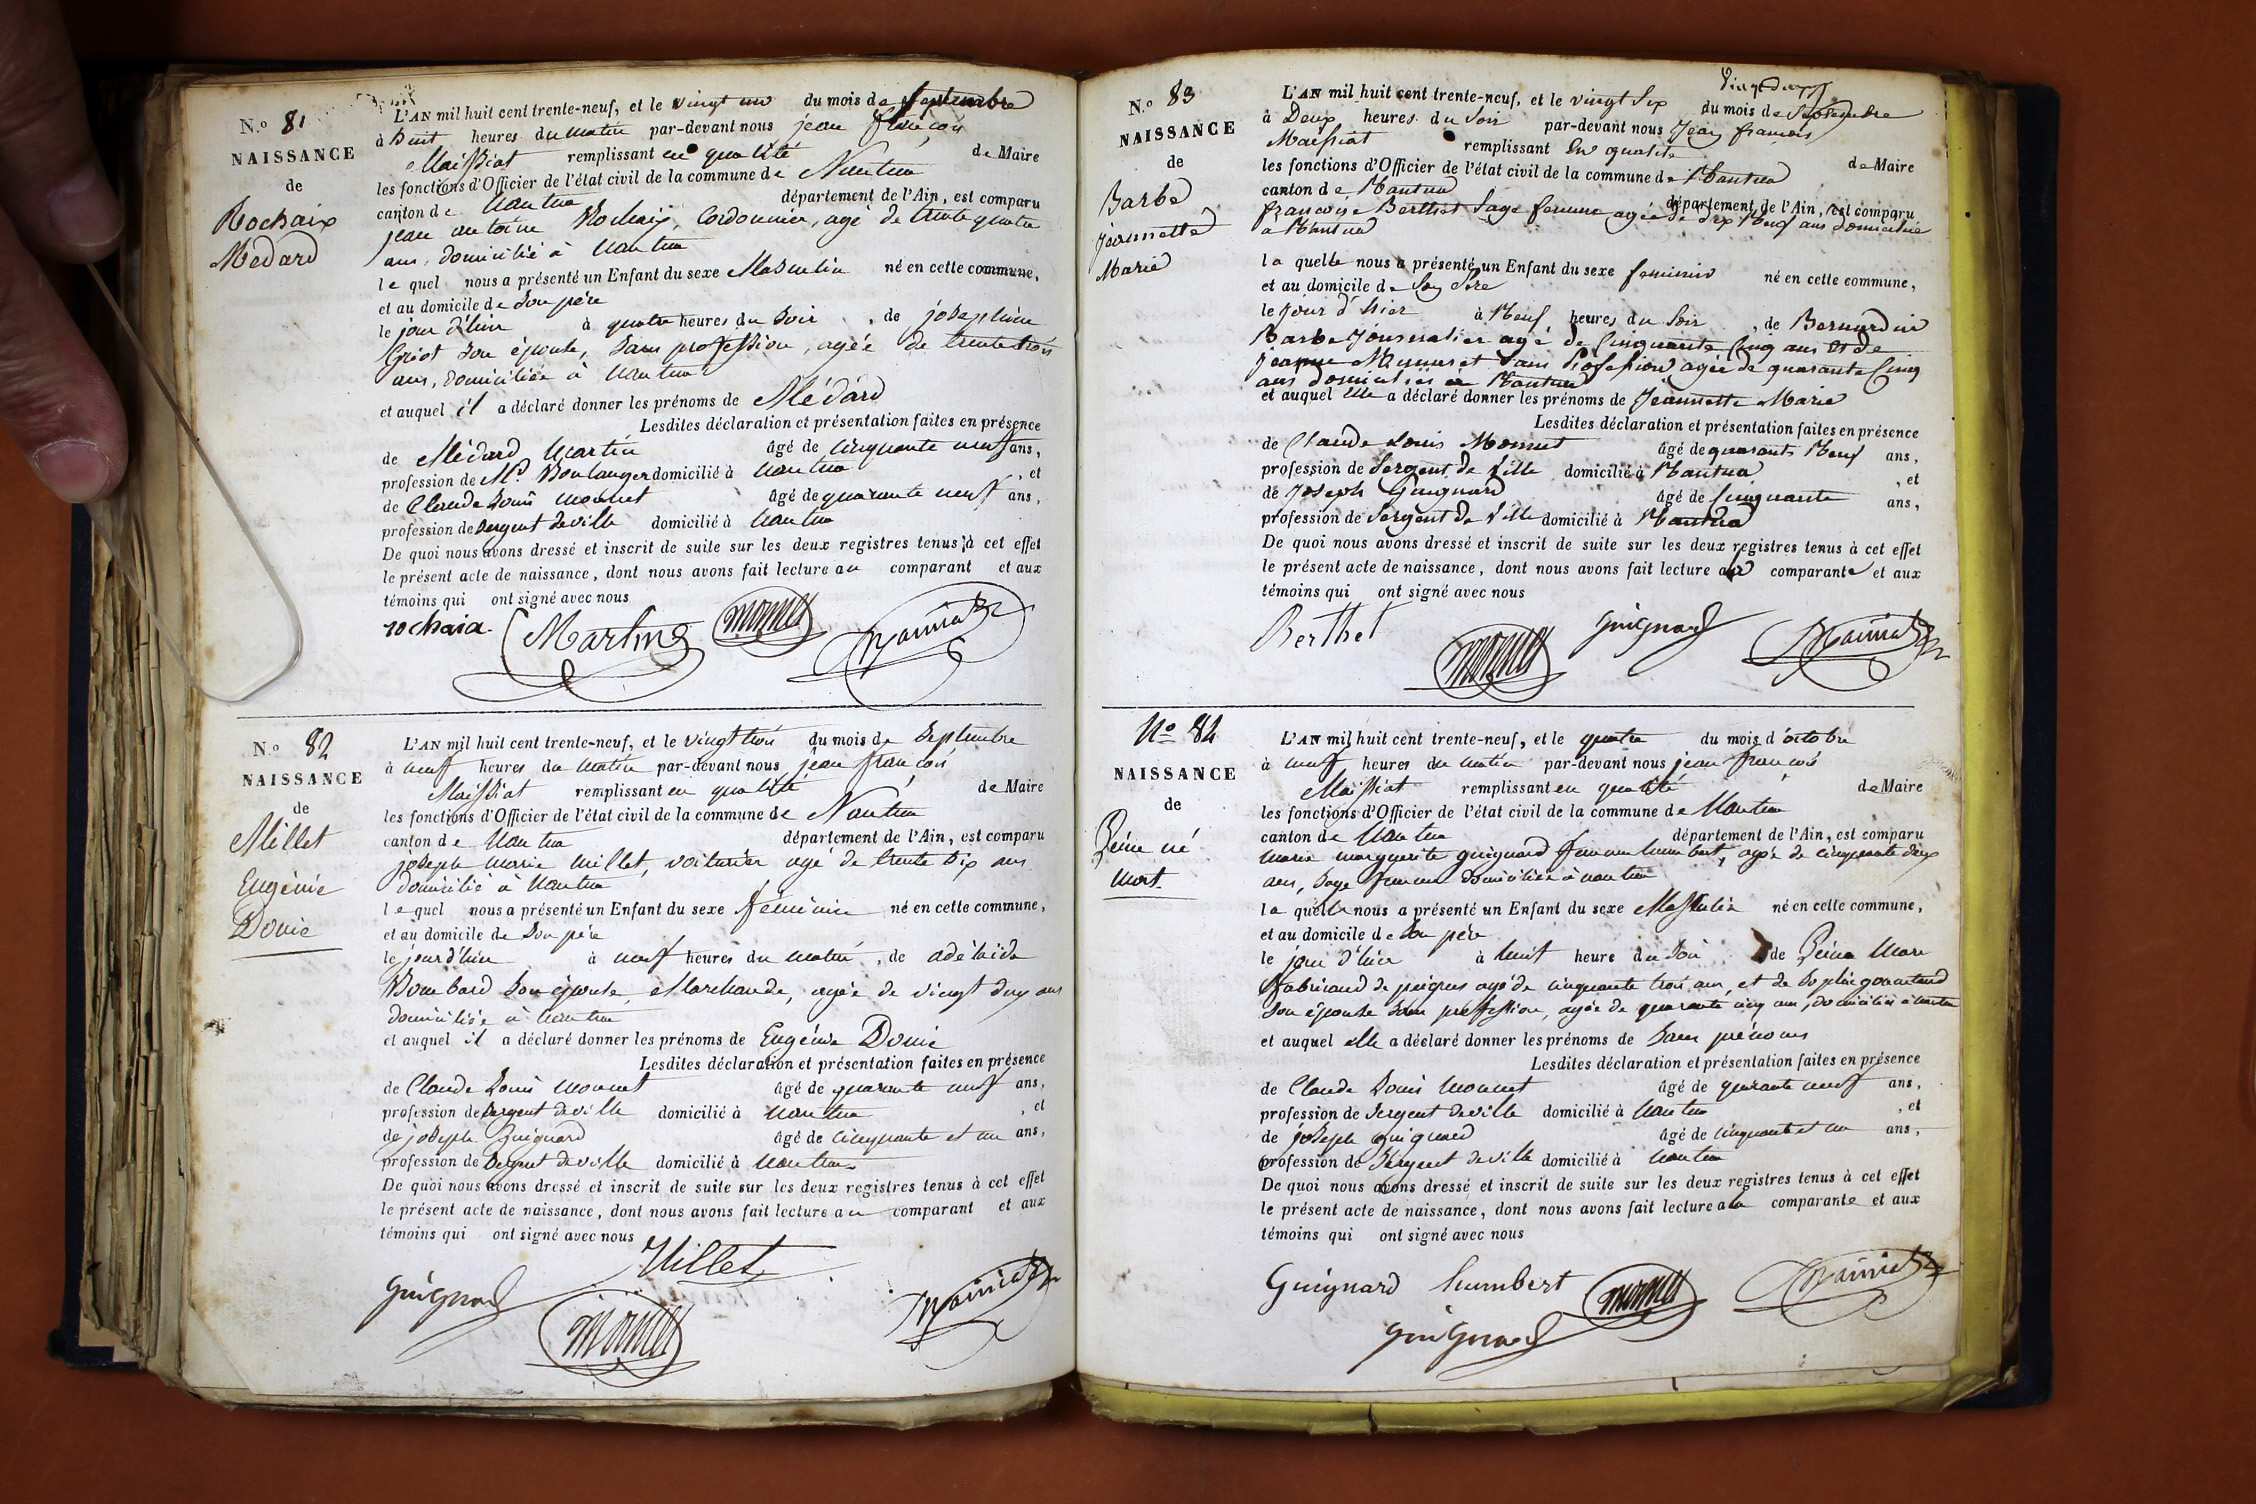 N.o 81
NAISSANCE
de
Rochaix
Medard
L'AN mil huit cent trente-neuf, et le vingt un du mois de Septembre
à huit heures du matin par-devant nous jean françois
Maissiat remplissant en qualité de Maire
les fonctions d'Officier de l'état civil de la commune de Nantua
canton de Nantua département de l'Ain, est comparu
jean antoine Rochaix, Cordonnier, agé de trente quatre
ans, domicilié à Nantua
le quel nous a présenté un Enfant du sexe Masculin né en cette commune,
et au domicile de Son père
le jour d'hier à quatre heures du Soir, de joséphine
Griot Son épouse, Sans profession, agée de trente trois
ans, domiciliée à Nantua
et auquel il a déclaré donner les prénoms de Médard
Lesdites déclaration et présentation faites en présence
de Médard Martin âgé de cinquante neuf ans,
profession de Md. Boulanger domicilié à Nantua, et
de Claude Louis Monnet âgé de quarante neuf ans,
profession de Sergent de ville domicilié à Nantua
De quoi nous avons dressé et inscrit de suite sur les deux registres tenus à cet effet
le présent acte de naissance, dont nous avons fait lecture au comparant et aux
témoins qui ont signé avec nous
rochaia. Martin monnet Maissiat
N.o 82
NAISSANCE
de
Millet
Eugénie
Donie
L'AN mil huit cent trente-neuf, et le vingt trois du mois de Septembre
à neuf heures du matin par-devant nous jean françois
Maissiat remplissant en qualité de Maire
les fonctions d'Officier de l'état civil de la commune de Nantua
canton de Nantua département de l'Ain, est comparu
joseph marie Millet, voiturier agé de trente Six ans
domicilié à Nantua
le quel nous a présenté un Enfant du sexe féminin né en cette commune,
et au domicile de Son père
le jour d'hier à neuf heures du matin, de adélaïde
Bombard Son épouse, Marchande, agée de vingt deux ans
domiciliée à Nantua
et auquel il a déclaré donner les prénoms de Eugénie Donie
Lesdites déclaration et présentation faites en présence
de Claude Louis Monnet âgé de quarante neuf ans,
profession de Sergent de ville domicilié à Nantua, et
de joseph Guignard âgé de cinquante et un ans,
profession de Sergent de ville domicilié à Nantua
De quoi nous avons dressé et inscrit de suite sur les deux registres tenus à cet effet
le présent acte de naissance, dont nous avons fait lecture au comparant et aux
témoins qui ont signé avec nous
Millet
Guignard monnet Maissiat
N.o 83
NAISSANCE
de
Barbe
Jeannette
Marie
L'AN mil huit cent trente-neuf, et le vingt Six du mois de Septembre
à Deux heures du Soir par-devant nous Jean françois
Maissiat remplissant En qualité de Maire
les fonctions d'Officier de l'état civil de la commune de Nantua
canton de Nantua département de l'Ain, est comparu
françoise Berthet Sage femme agée de dix Neuf ans domiciliée
a Nantua
la quelle nous a présenté un Enfant du sexe feminin né en cette commune,
et au domicile de Son Père
le Jour d'hier à Neuf heures du Soir, de Bernardin
Barbe Journalier agé de Cinquante Cinq ans et de
Jeanne Sans Profession agée de quarante Cinq
ans domiciliés à Nantua
et auquel Elle a déclaré donner les prénoms de Jeannette Marie
Lesdites déclaration et présentation faites en présence
de Claude Louis Monnet âgé de quarante Neuf ans,
profession de Sergent de Ville domicilié à Nantua, et
de Joseph Guignard âgé de Cinquante ans,
profession de Sergent de Ville domicilié à Nantua
De quoi nous avons dressé et inscrit de suite sur les deux registres tenus à cet effet
le présent acte de naissance, dont nous avons fait lecture comparante et aux
témoins qui ont signé avec nous
Berthet monnet Guignard Maissiat
No 84
NAISSANCE
de
Réné né
mort
L'AN mil huit cent trente-neuf, et le quatre du mois d'octobre
à neuf heures du matin par-devant nous jean françois
Maissiat remplissant en qualité de Maire
les fonctions d'Officier de l'état civil de la commune de Nantua
canton de Nantua département de l'Ain, est comparu
marie marguerite guignard femme humbert, agée de cinquante deux
ans, Sage femme domiciliée à nantua
la quelle nous a présenté un Enfant du sexe Masculin né en cette commune,
et au domicile de Son père
le jour d'hier à huit heure du Soir de Marc
fabricand de peignes agé de cinquante trois ans, et de Sophie
Son épouse Sans profession, agée de quarante cinq ans, domiciliés à Nantua
et auquel elle a déclaré donner les prénoms de Sans prénoms
Lesdites déclaration et présentation faites en présence
de Claude Louis Monnet âgé de quarante neuf ans,
profession de Sergent de ville domicilié à Nantua, et
de joseph guignard âgé de cinquante et un ans,
profession de Sergent de ville domicilié à Nantua
De quoi nous avons dressé et inscrit de suite sur les deux registres tenus à cet effet
le présent acte de naissance, dont nous avons fait lecture a la comparante et aux
témoins qui ont signé avec nous
Guignard humbert monnet Maissiat
Guignard